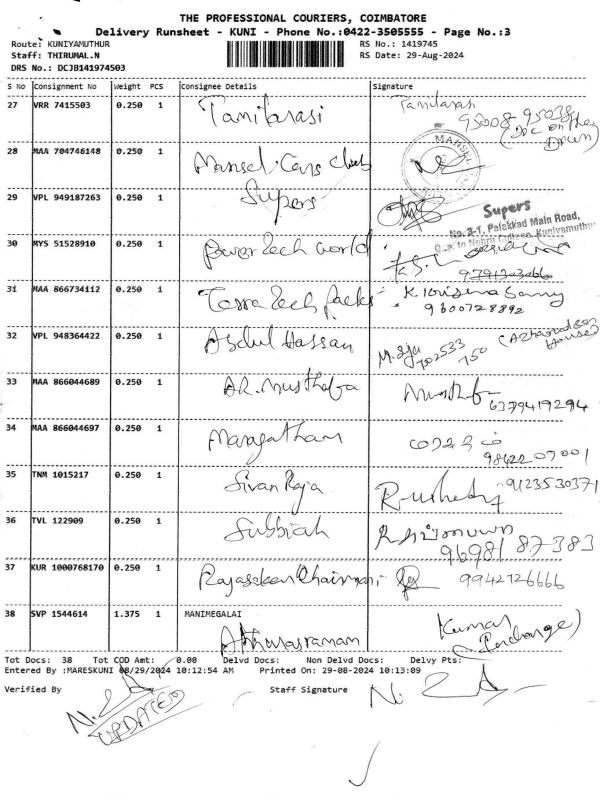 THE PROFESSIONAL COURIERS, COIMBATORE
Delivery Runsheet - KUNI - Phone No.:0422-3505555 - Page No.:3
Route: KUNIYAMUTHUR RS No.: 1419745
Staff: THIRUMAL.N RS Date: 29-Aug-2024
DRS No.: DCJB141974503
S No Consignment No Weight PCS Consignee Details Signature
27 VRR 7415503 0.250 1 Tamilarasi Tamilarasi
95008 95038
28 MAA 704746148 0.250 1
MANSEL
29 VPL 949187263 0.250 1 Supers
Supers
No. 3-1, Palakkad Main Road,
Opp. to Nehru College, Kuniyamuthur
30 MYS 51528910 0.250 1 Power Tech World
31 MAA 866734112 0.250 1 K. Krishna Samy
9600728892
32 VPL 948364422 0.250 1 Abdul Hassan M. Siju
702533
750
33 MAA 866044689 0.250 1 A.R. Musthafa Musthafa
6379419294
34 MAA 866044697 0.250 1 Maragatham
98422 07001
35 TNM 1015217 0.250 1 Sivan Raja 9123530371
36 TVL 122909 0.250 1 Subbiah
96981 87383
37 KUR 1000768170 0.250 1 9942726666
38 SVP 1544614 1.375 1 MANIMEGALAI Kumar
Tot Docs: 38 Tot COD Amt: 0.00 Delvd Docs: Non Delvd Docs: Delvy Pts:
Entered By :MARESKUNI 08/29/2024 10:12:54 AM Printed On: 29-08-2024 10:13:09
Verified By Staff Signature
UPDATED